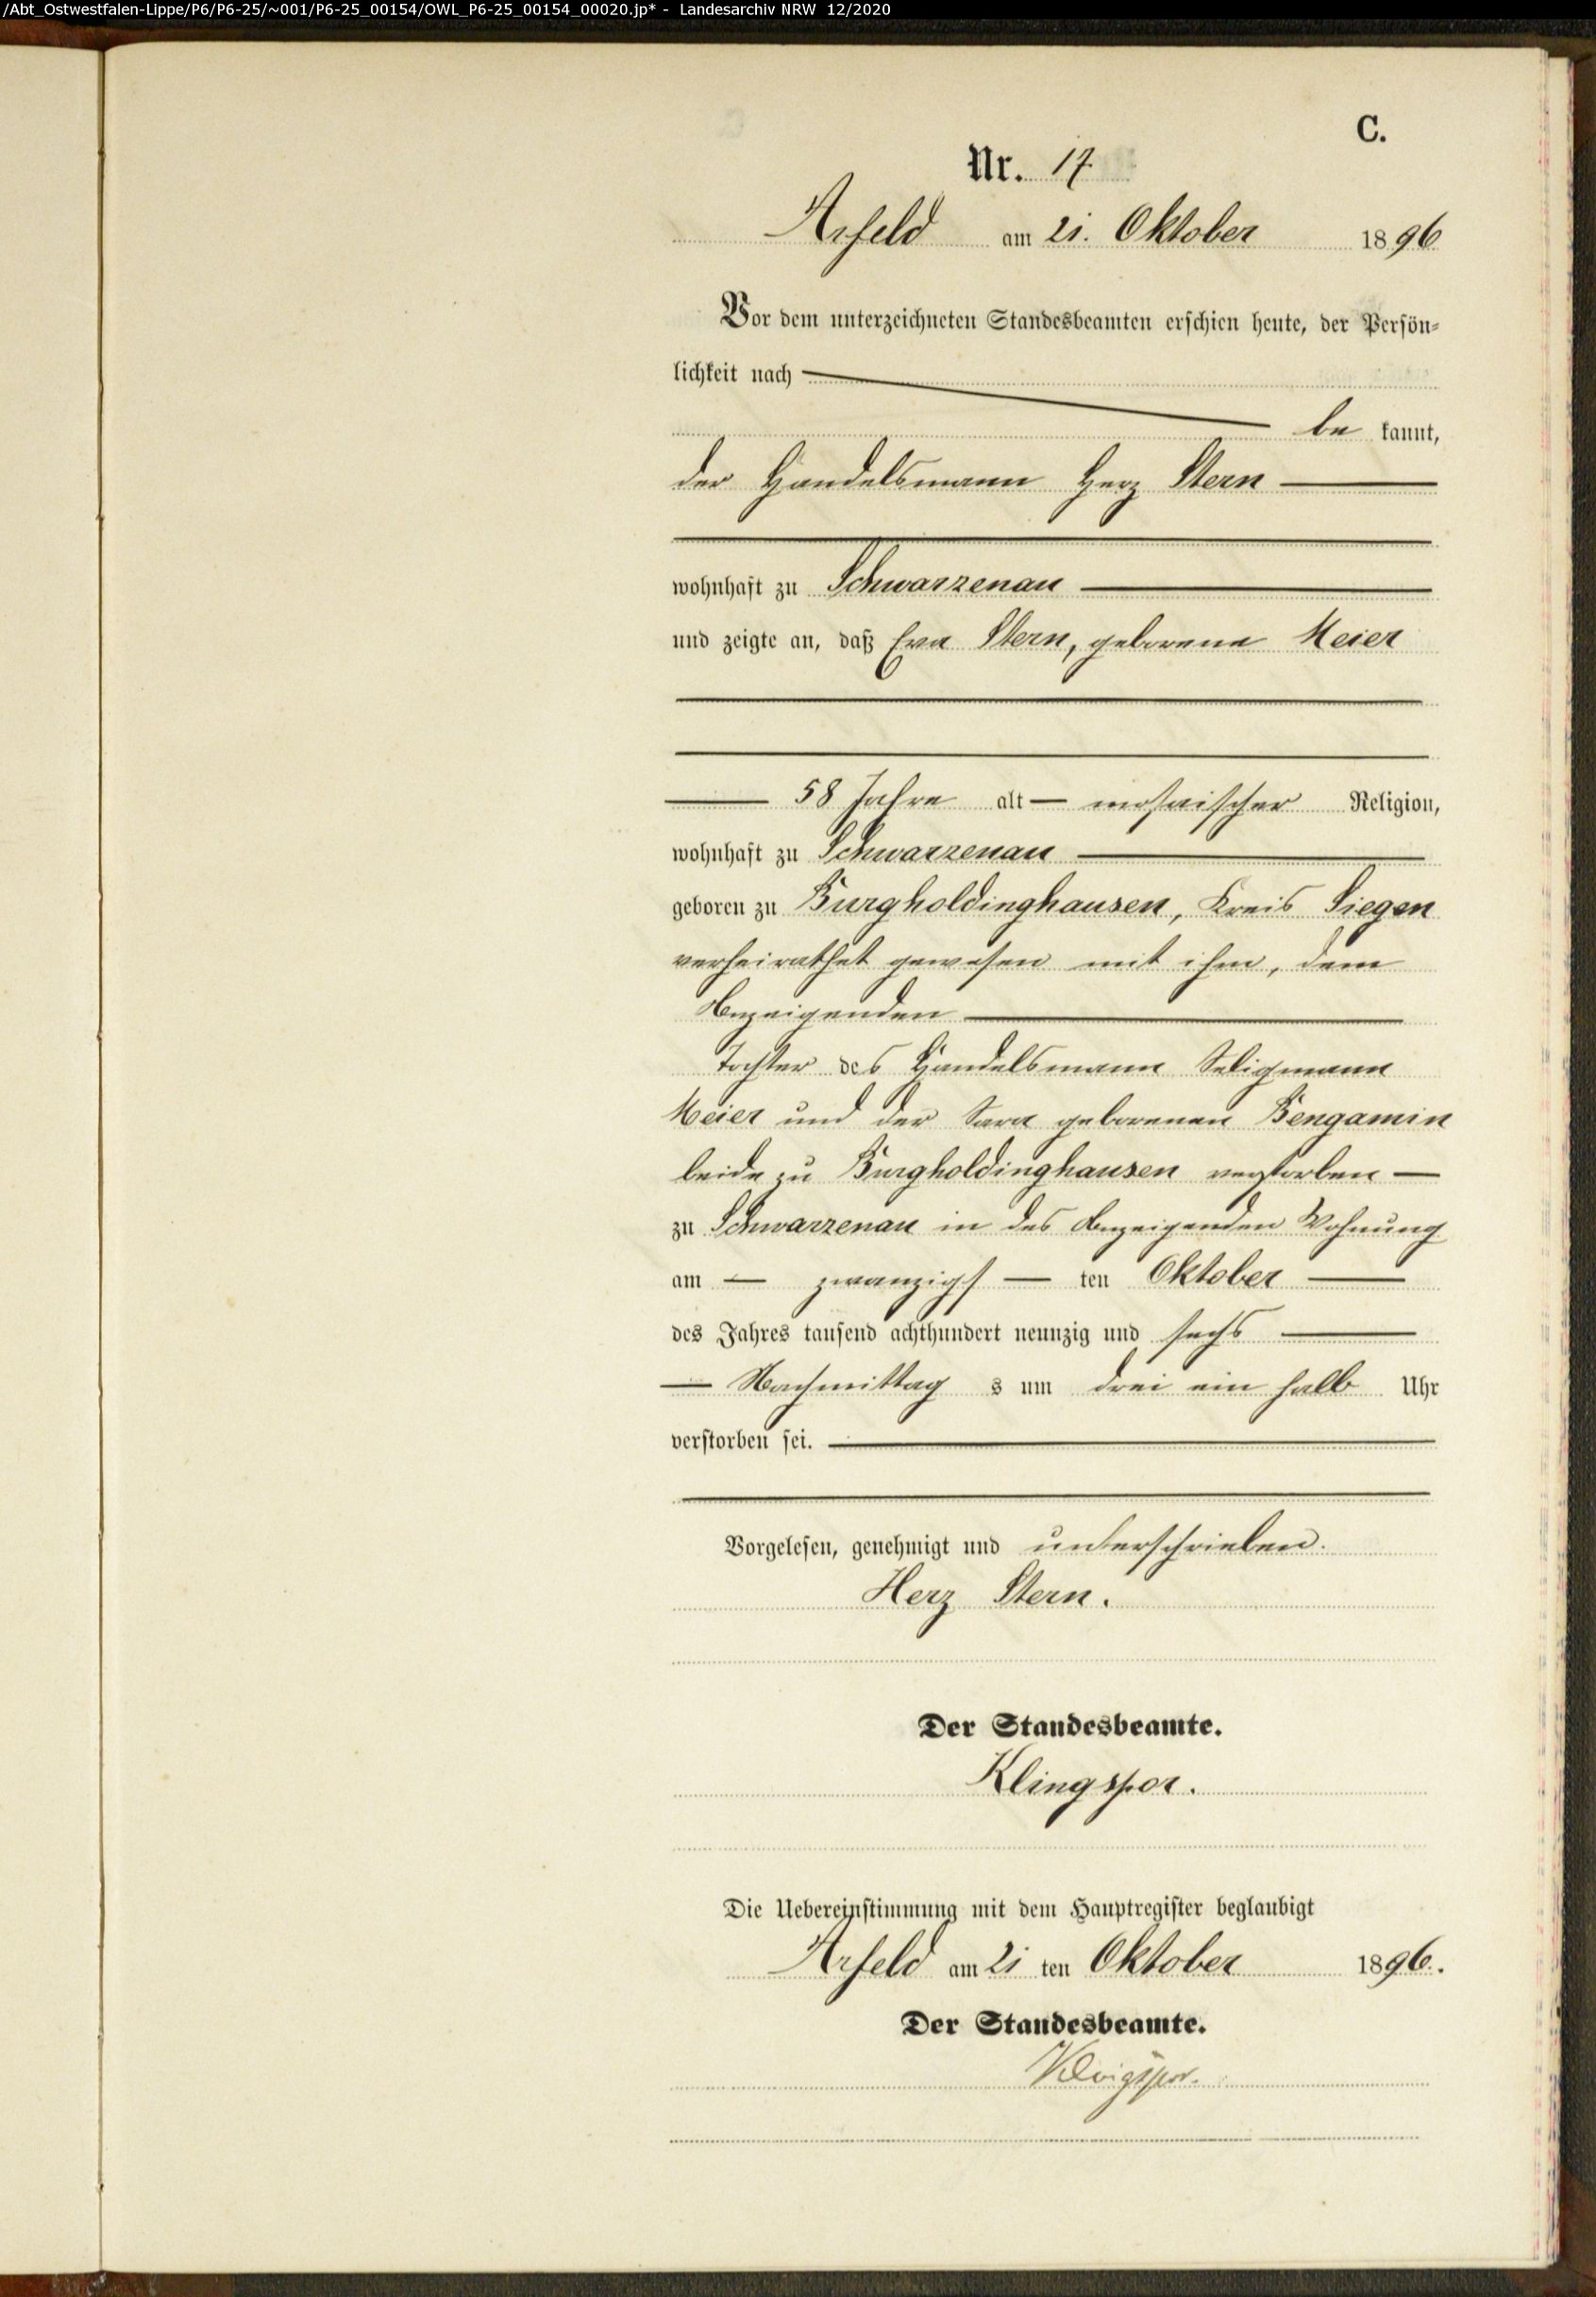 /Abt_Ostwestfalen-Lippe/P6/P6-25/~001/P6-25_00154/OWL_P6-25_00154_00020.jp* - Landesarchiv NRW 12/2020
C.
Nr. 17
Arfeld am 21. Oktober 1896
Vor dem unterzeichneten Standesbeamten erschien heute, der Persön-
lichkeit nach
be kannt,
der Handelsmann Herz Stern
wohnhaft zu Schwarzenau
und zeigte an, daß Eva Stern, geborene Meier
58 Jahre alt mosaischer Religion,
wohnhaft zu Schwarzenau
geboren zu Burgholdinghausen, Kreis Siegen
verheirathet gewesen mit ihm, dem
Anzeigenden
Tochter des Handelsmann Seligmann
Meier und der Sara geborenen Bengamin
beide zu Burgholdinghausen verstorben
zu Schwarzenau in des Anzeigenden Wohnung
am zwanzigs ten Oktober
des Jahres tausend achthundert neunzig und sechs
Nachmittag s um drei ein halb Uhr
verstorben sei.
Vorgelesen, genehmigt und unterschrieben.
Herz Stern.
Der Standesbeamte.
Klingspor.
Die Uebereinstimmung mit dem Hauptregister beglaubigt
Arfeld am 21 ten Oktober 1896.
Der Standesbeamte.
Klingspor.